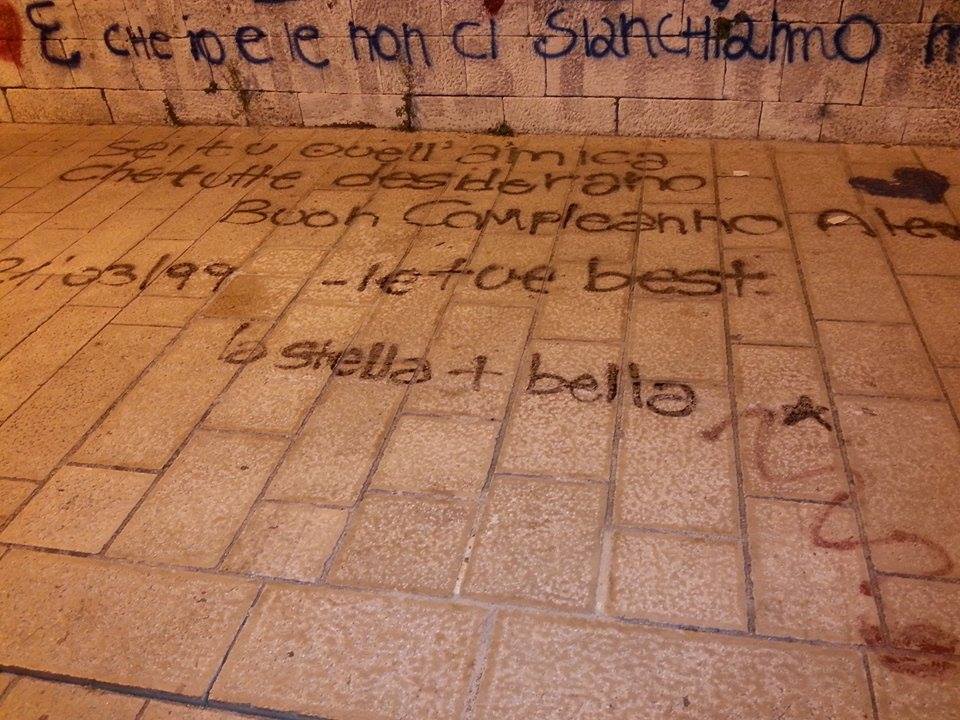 E CHE io e te non ci stanchiamo
sei tu quell'amica
che tutte desiderano
Buon Compleanno Ale
21/03/99 -le tue best
la stella + bella